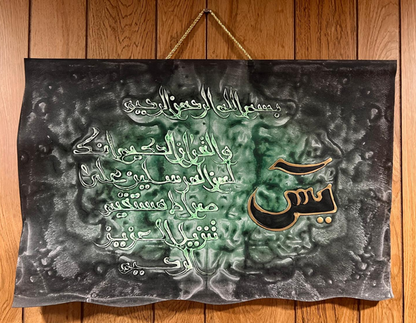 بسم الله الرحمن الرحيم
يٓسٓ
والقرآن الحكيم إنك
لمن المرسلين على
صراط مستقيم
تنزيل العزيز
الرحيم